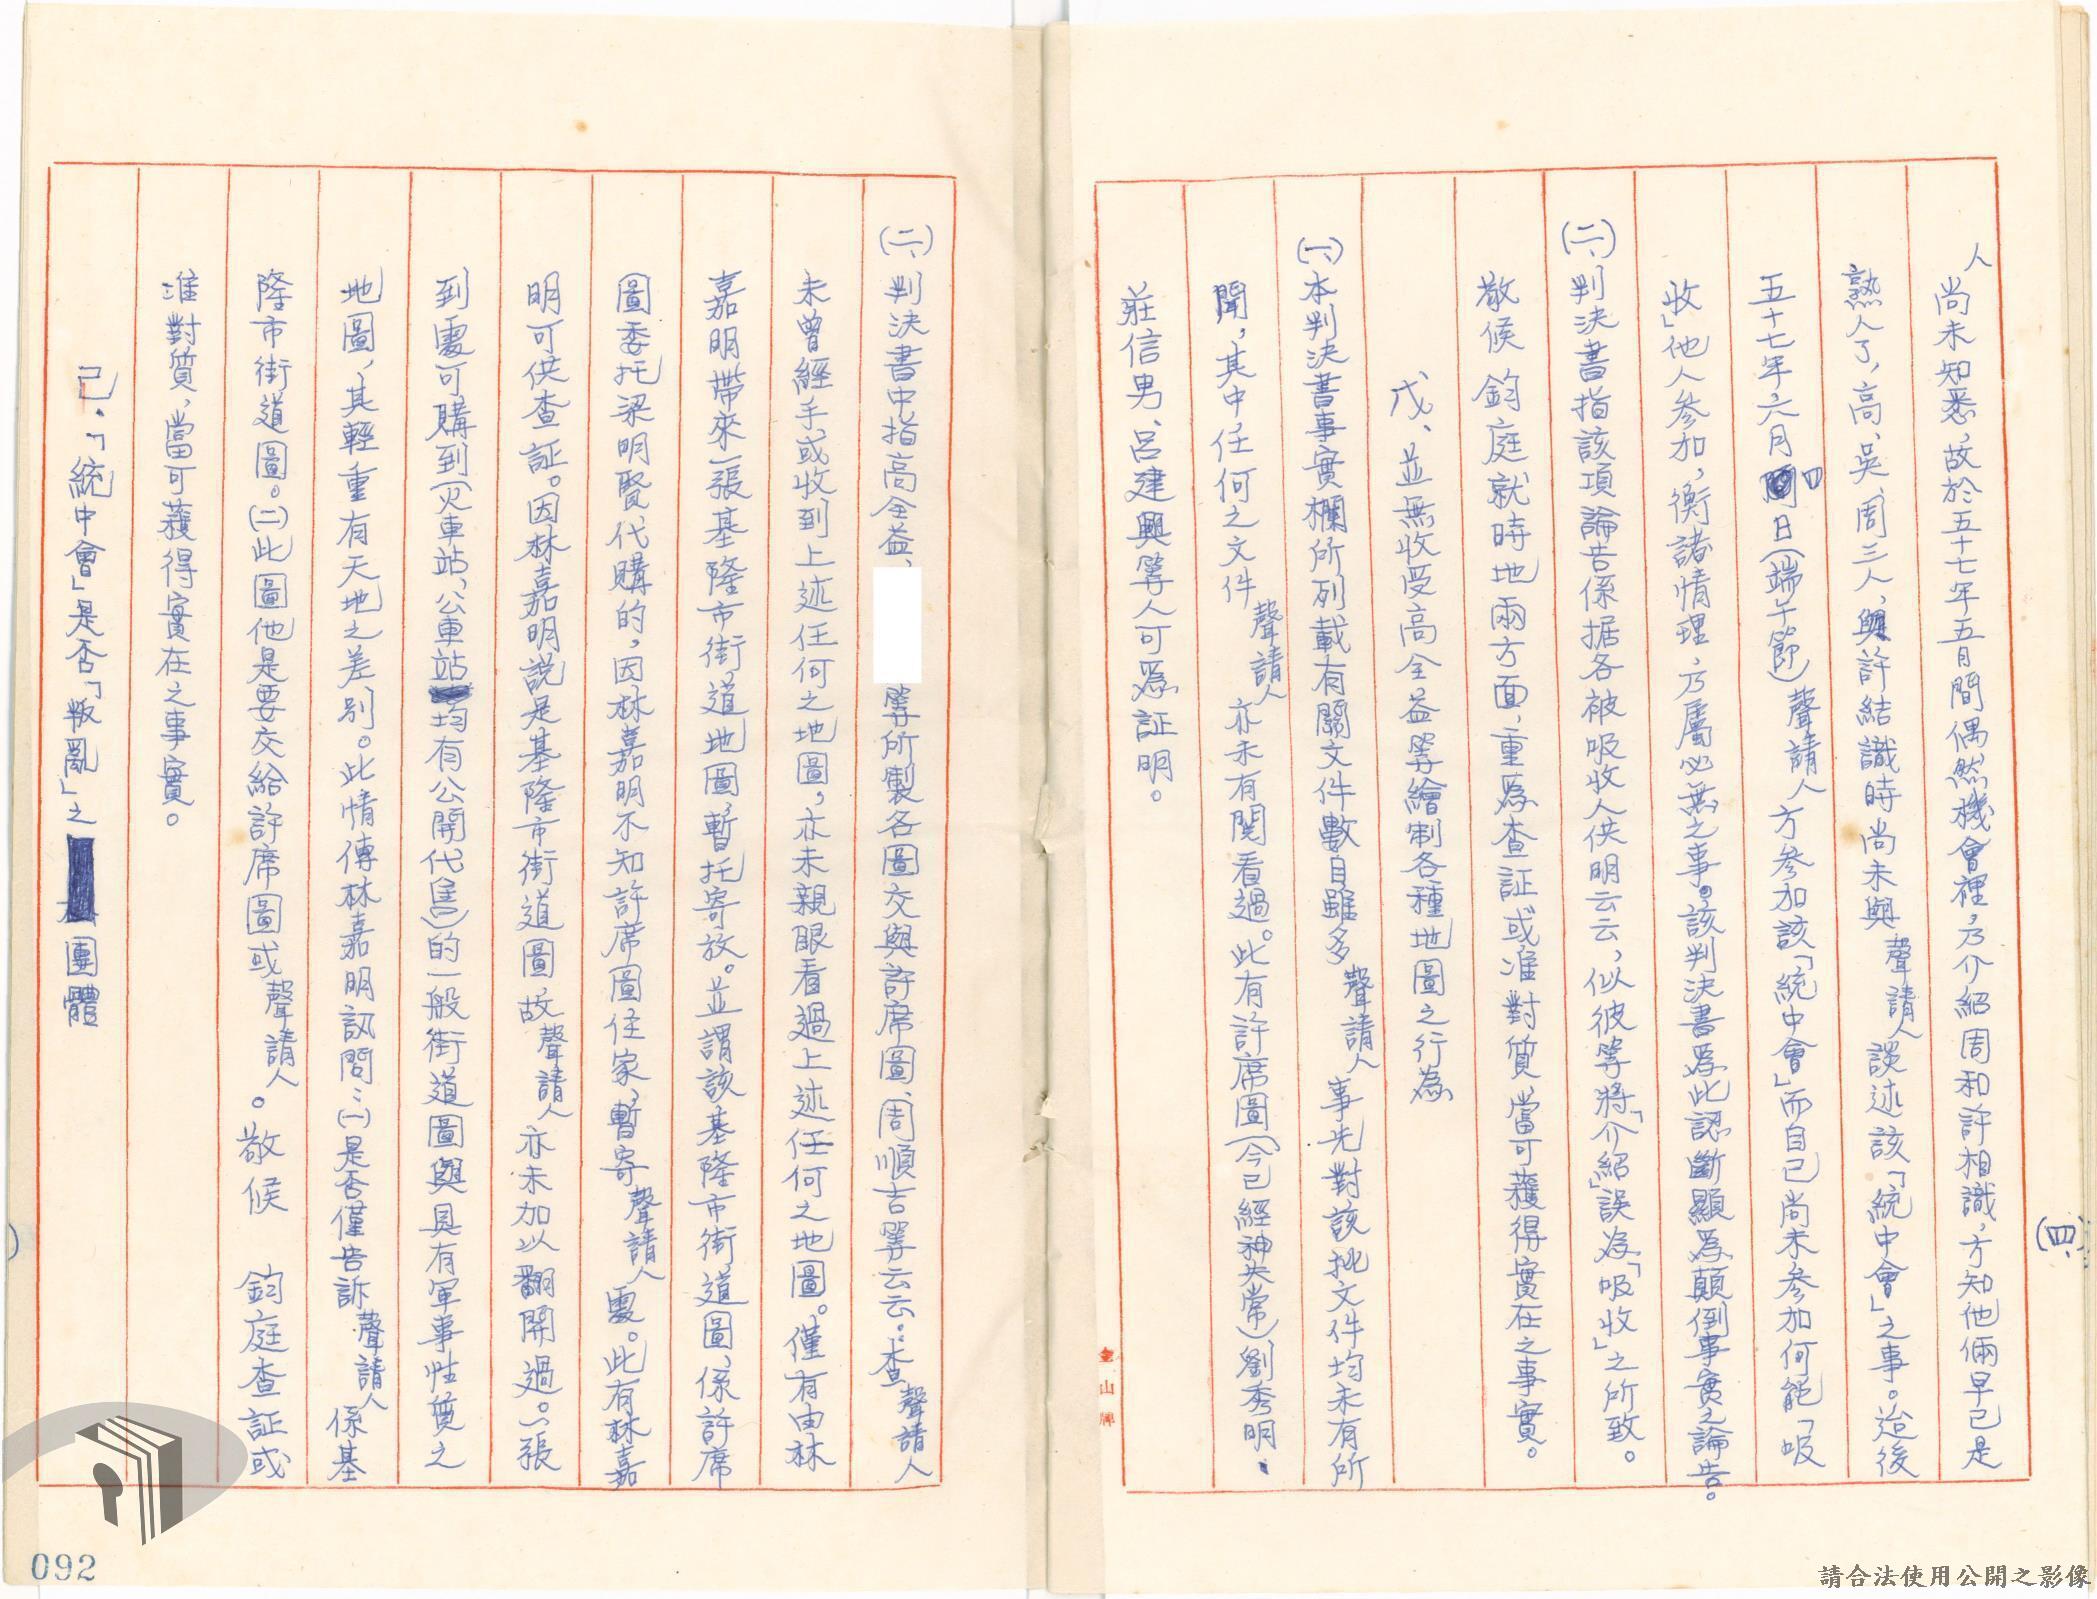 (四)
人尚未知悉,故於五十七年五月間偶然機會裡,乃介紹周和許相識,方知他倆早已是
熟人了,高、吳、周三人,與許結識時尚未與聲請人談述該「統中會」之事。迨後
五十七年六月四日(端午節)聲請人方參加該「統中會」而自己尚未參加何能「吸
收」他人參加,衡諸情理,乃屬必無之事。該判決書為此認斷顯為顛倒事實之論告。
(二)、判決書指該項論告係据各被吸收人供明云云,似彼等將「介紹」誤為「吸收」之所致。
敬候 鈞庭就時地兩方面,重為查証或准對質,當可獲得實在之事實。
戊、並無收受高全益等繪制各種地圖之行為
(一)、本判決書事實欄所列載有關文件數目雖多聲請人事先對該批文件均未有所
聞,其中任何之文件聲請人亦未有閱看過。此有許席圖(今已經神失常)、劉秀明、
莊信男、呂建興等人可為証明。
金山牌
(二)、判決書中指高全益、 等所製各圖交與許席圖、周順吉等云云。:查聲請人
未曾經手、或收到上述任何之地圖,亦未親眼看過上述任何之地圖。僅有由林
嘉明帶來一張基隆市街道地圖,暫托寄放。並謂該基隆市街道圖,係許席
圖委托梁明賢代購的,因林嘉明不知許席圖住家,暫寄聲請人處。此有林嘉
明可供查証。因林嘉明說是基隆市街道圖,故聲請人亦未加以翻開過。一張
到處可購到(火車站、公車站均有公開代售)的一般街道圖與具有軍事性質之
地圖,其輕重有天地之差別。此情傳林嘉明訊問:(一)是否僅告訴聲請人係基
隆市街道圖。(二)此圖他是要交給許席圖或聲請人。敬候 鈞庭查証或
准對質,當可獲得實在之事實。
己.「統中會」是否「叛亂」之團體
092
請合法使用公開之影像